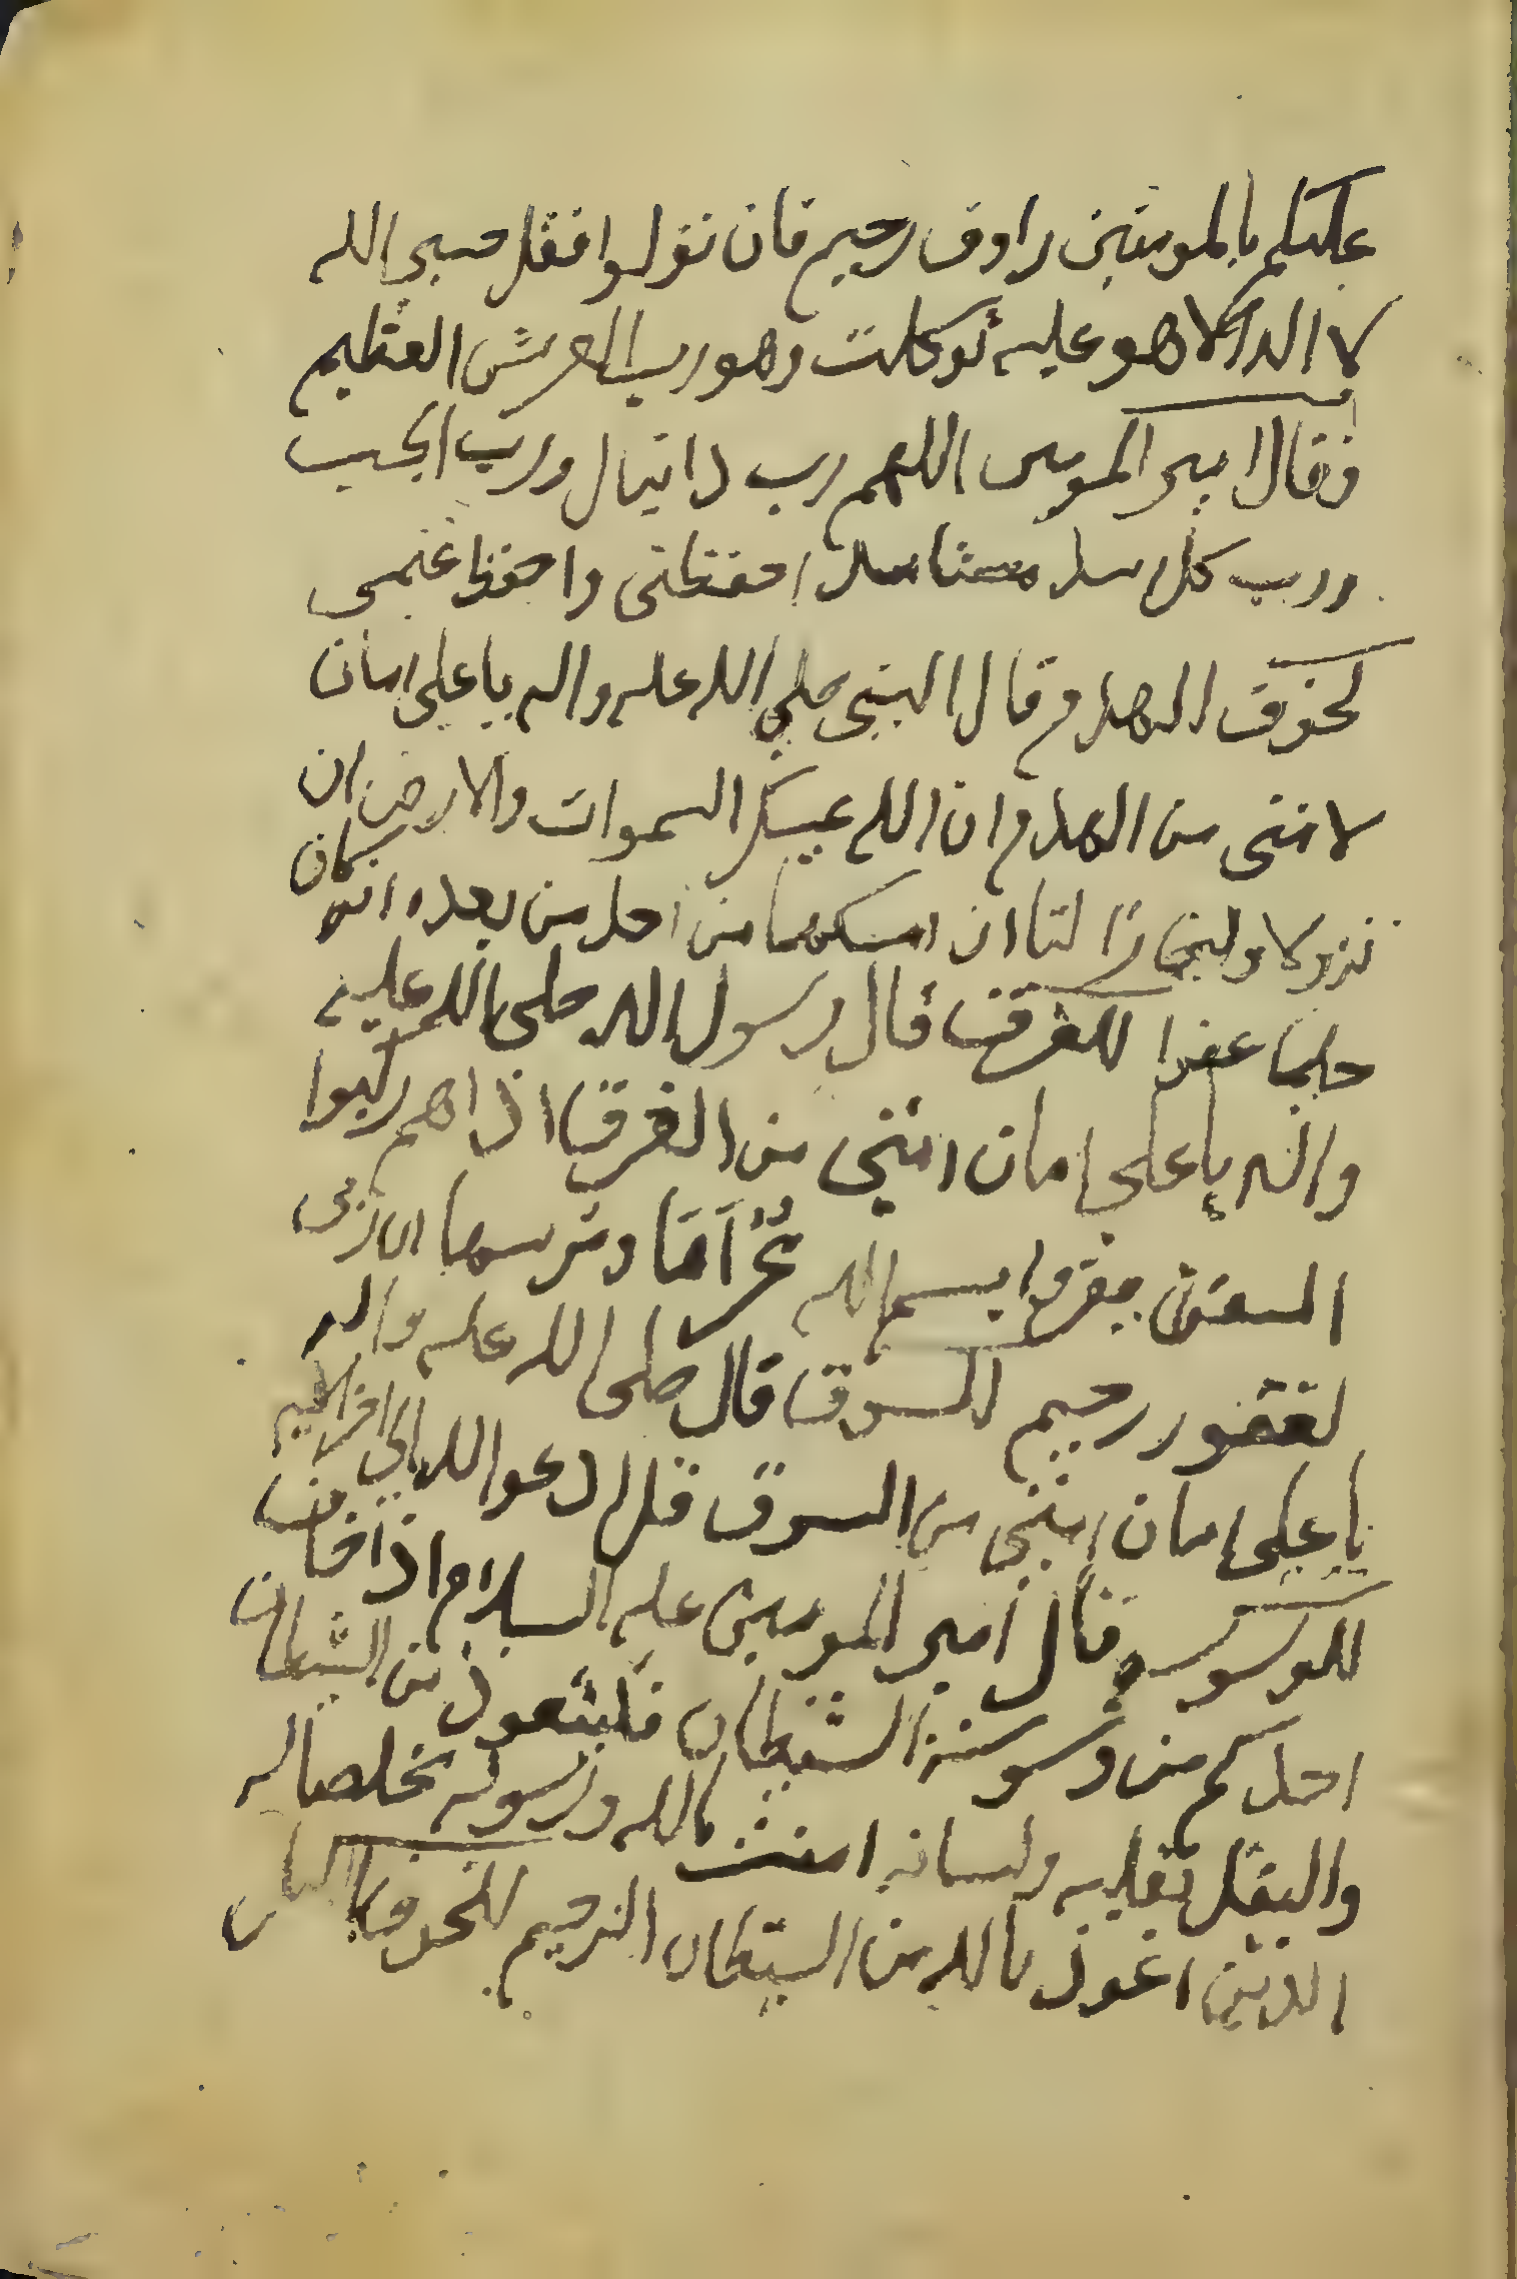 عليكم بالمومنين راوف رحيم فان تولوا فقل حسبي الله
لا اله الا هو عليه توكلت وهو رب العرش العظيم
فقال امير المومنين اللهم رب دانيال ورب الجب
ورب كل اسد مستاسد احفظني واحفظ غنمي
لخوف الهدم قال النبي صلى الله عليه واله يا علي امان
لامتي من الهدم ان الله يمسك السموات والارض ان
تزولا ولين زالتا ان امسكهما من احد من بعده انه كان
حليما غفورا للغرق قال رسول الله صلى الله عليه
واله يا علي امان امتي من الغرق اذا هم ركبوا
السفن يقروا بسم الله مجراها ومرسها ان ربي
لغفور رحيم للسرق قال صلى الله عليه واله
يا علي امان امتي من السرق قل ادعوا الله الى اخر الايه
للوسوسه قال امير المومنين عليه السلام اذا خاف
احدكم من وسوسة الشيطان فليتعوذ من الشيطان
واليقل بقلبه ولسانه امنت بالله ورسوله مخلصا له
الدين اعوذ بالله من الشيطان الرجيم